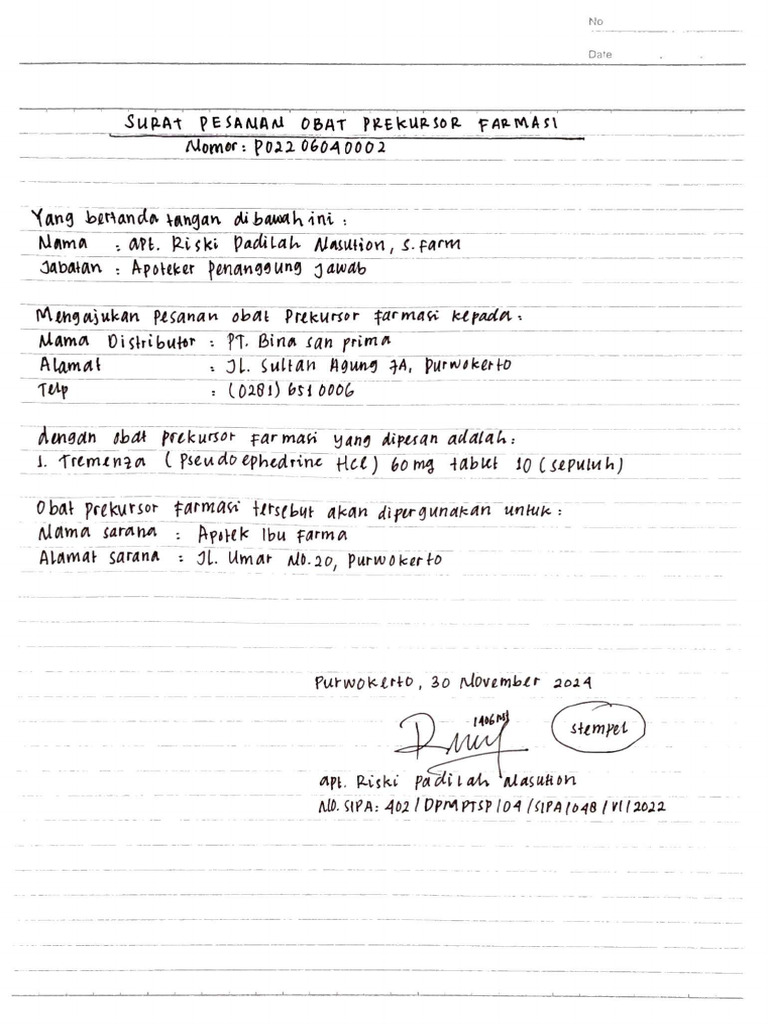 No
Date
SURAT PESANAN OBAT PREKURSOR FARMASI
Nomor: P02206040002
Yang bertanda tangan dibawah ini :
Nama : apt. Riski Padilah Nasution, S.farm
Jabatan : Apoteker Penanggung Jawab
Mengajukan pesanan obat Prekursor farmasi kepada :
Nama Distributor : PT. Bina san prima
Alamat : JL. Sultan Agung 7A, Purwokerto
Telp : (0281) 6510006
dengan obat prekursor farmasi yang dipesan adalah :
1. Tremenza (Pseudoephedrine HCl) 60mg tablet 10 (sepuluh)
Obat prekursor farmasi tersebut akan dipergunakan untuk :
Nama sarana : Apotek Ibu Farma
Alamat sarana : JL. Umar No.20, Purwokerto
Purwokerto, 30 November 2024
stempel
apt. Riski Padilah Nasution
NO. SIPA: 402/DPMPTSP/04/SIPA/048/VI/2022